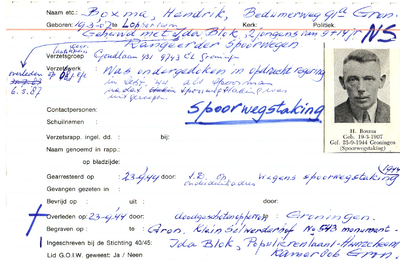 Naam etc.: Boxma, Hendrik, Bedumerweg 91a Gron.
Geboren: 19.3.07 te Loppersum Kerk: Politiek
Gehuwd met Ida Blok, 2 jongens van 9+14 jr. NS
Rangeerder spoorwegen
Verzetsgroep Goudlaan 431 9743 CL Groningen
overleden
6.3.87
Verzetswerk Was ondergedoken in opdracht regering
in sept. 44 als spoorman
nadat spoorwegstaking was
uitgeroepen
Contactpersonen: Spoorwegstaking
Schuilnamen :
Verzetsrapp. ingd. dd. : bij:
Naam genoemd in rapp.:
op bladzijde:
H. Boxma
Geb. 19-3-1907
Gef. 23-9-1944 Groningen
(Spoorwegstaking)
Gearresteerd op 23-9-44 door: S.D. op wegens spoorwegstaking 1944
onderduikadres
Gevangen gezeten in:
Bevrijd op : uit : door:
Overleden op 23-9-44 door: doodgeschoten Groningen.
Begraven op : Gron. Klein Selwerderhof No 543 monument.
Ingeschreven bij de Stichting 40/45: Ida Blok, Populierenlaan 1
Lid G.O.I.W. geweest: Ja / Neen Gron.